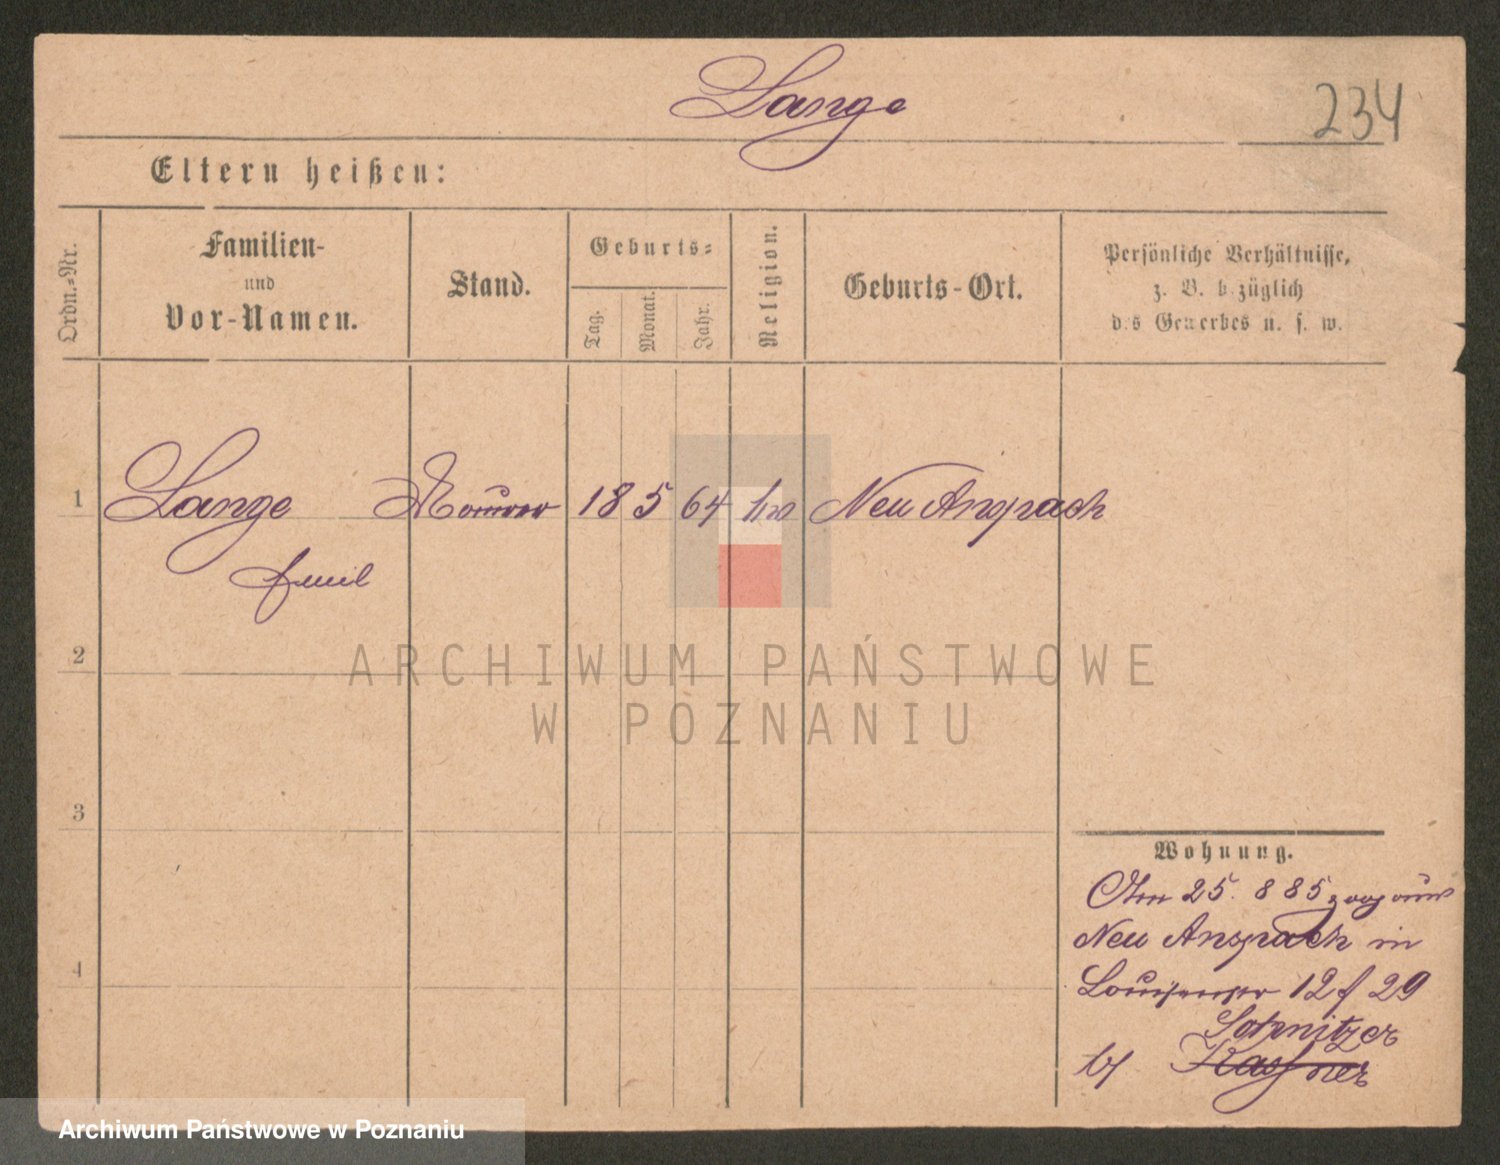 Lange
234
Eltern heißen:
Ordn.-Nr.
Familien-
und
Vor-Namen.
Stand.
Geburts-
Tag.
Monat.
Jahr.
Religion.
Geburts-Ort.
Persönliche Verhältnisse,
z. B. bezüglich
des Gewerbes u. s. w.
1 Lange Maurer 18 5 64 Neu Anspach
Emil
2
ARCHIWUM PAŃSTWOWE
W POZNANIU
3
Wohnung.
Am 25. 8 85 zog aus
Neu Anspach in
4
Louisenstr 12 / 29
Schnitzer
Kastner
Archiwum Państwowe w Poznaniu